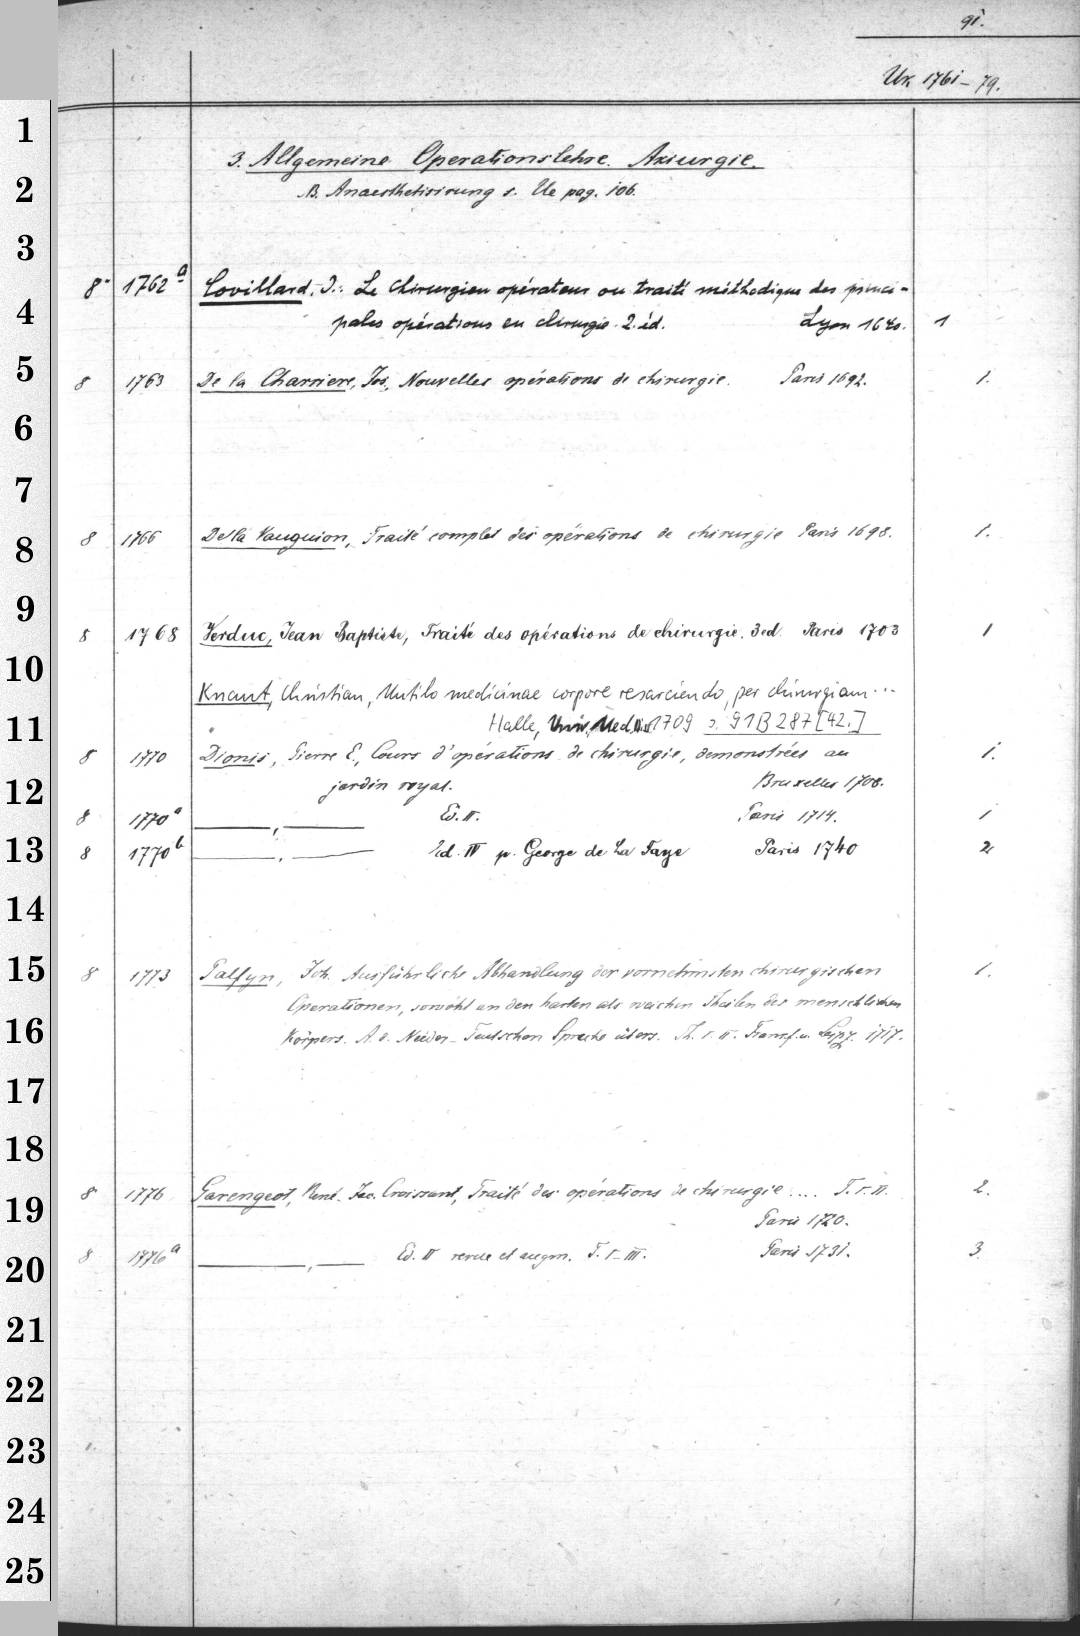 91.
Uk 1761-79.
3. Allgemeine Operationslehre. Akiurgie.
B. Anaesthetisirung s. Ue pag. 106.
8° 1762a Covillard, J.: Le Chirurgien opérateur ou traité méthodique des princi-
pales opérations en chirurgie. 2. éd. Lyon 1640. 1
8 1763 De la Charriere, Jos., Nouvelles opérations de chirurgie. Paris 1692. 1.
8 1766 De la Vauguion, Traité complet des opérations de chirurgie Paris 1698. 1.
8 1768 Verduc, Jean Baptiste, Traité des opérations de chirurgie. 3 ed. Paris 1703 1
Knaut, Christian, Mutilo medicinae corpore resarciendo per chirurgiam...
Halle, Univ., Med. Diss. 1709 s. 91 B 287 [42.]
8 1770 Dionis, Pierre E., Cours d'opérations de chirurgie, demonstrées au 1.
jardin royal. Bruxelles 1708.
8 1770a ——, —— Ed. II. Paris 1714. 1
8 1770b ——, —— Ed. IV p. George de La Faye Paris 1740 2
8 1773 Palfyn, Joh. Ausführliche Abhandlung der vornehmsten chirurgischen 1.
Operationen, sowohl an den harten als weichen Theilen des menschlichen
Körpers. A. d. Nieder-Teutschen Sprache übers. Th. I. II. Frankf. u. Leipz. 1717.
8 1776 Garengeot, René Jac. Croissant, Traité des opérations de chirurgie .... T. I. II. 2.
Paris 1720.
8 1776a ——, —— Ed. II revue et augm. T. I-III. Paris 1731. 3
1
2
3
4
5
6
7
8
9
10
11
12
13
14
15
16
17
18
19
20
21
22
23
24
25